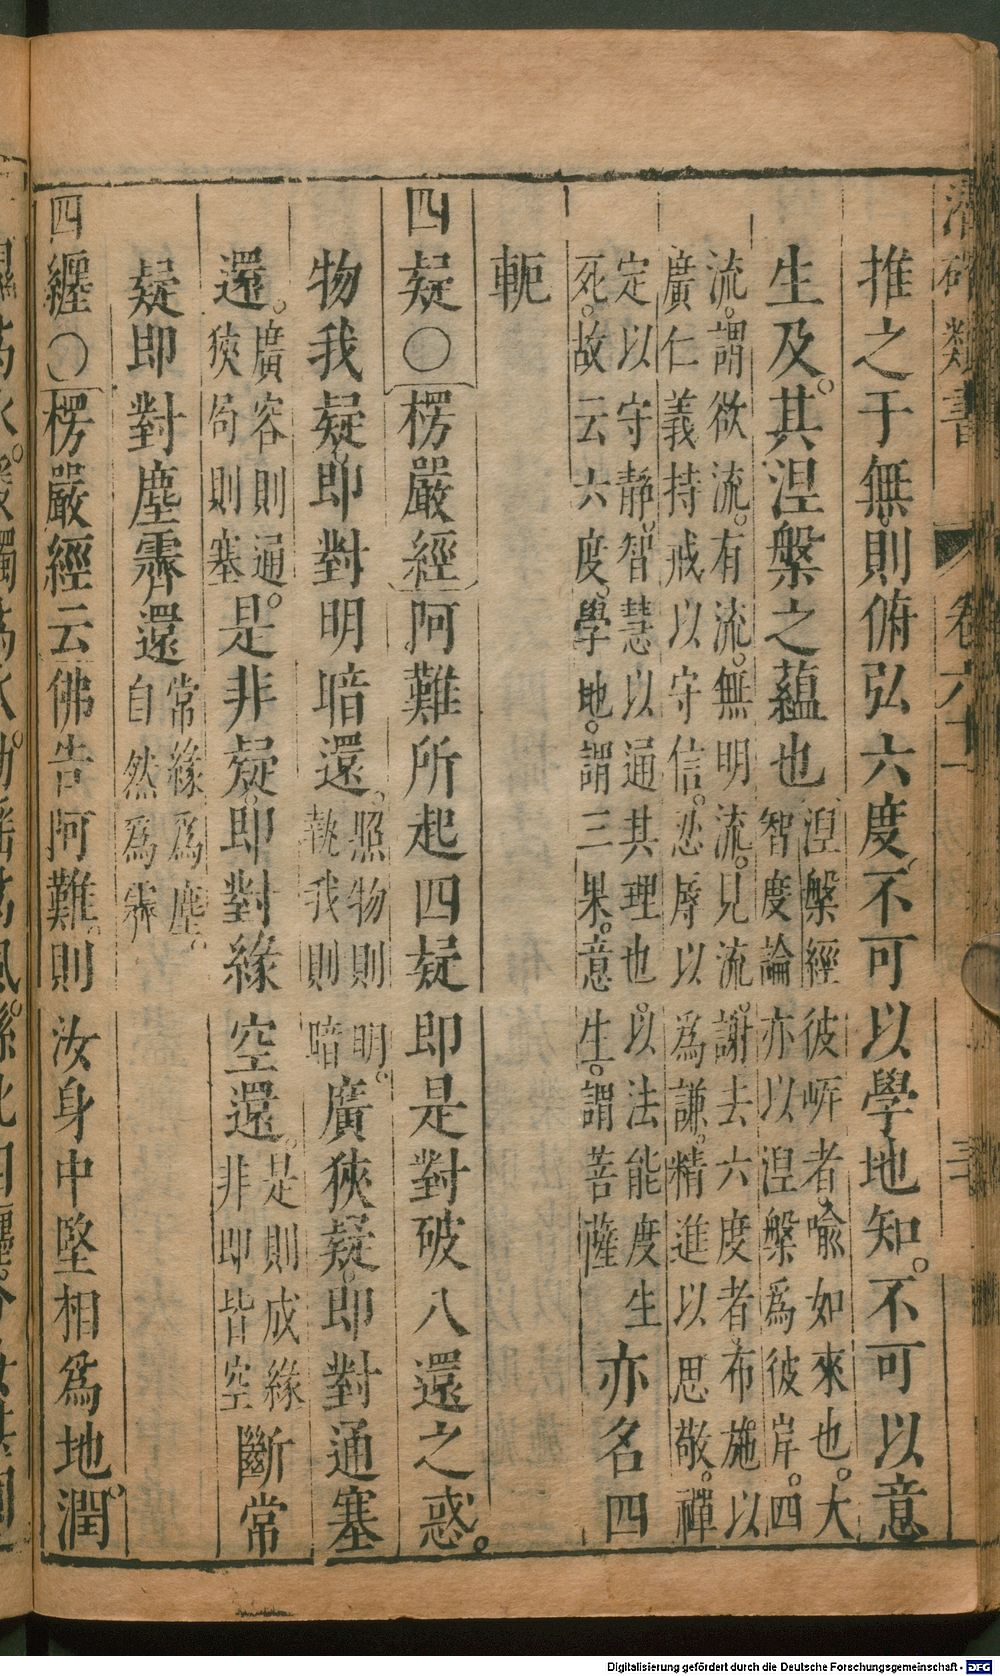 潛確類書 卷六十一 三
推之于無。則俯弘六度。不可以學地知。不可以意
生及。其涅槃之蘊也
涅槃經彼岍者。喻如來也。大
智度論亦以涅槃爲彼岸。四
流。謂欲流。有流。無明流。見流。謝去六度者。布施以
廣仁義持戒以守信。忍辱以爲謙。精進以思敬。禪
定以守靜。智慧以通其理也。以法能度生
死。故云六度。學地。謂三果。意生。謂菩薩
亦名四
軛
四疑○楞嚴經阿難所起四疑即是對破八還之惑。
物我疑。即對明暗還。
照物則明。
執我則暗
廣狹疑。即對通塞
還。
廣容則通。
狹局則塞
是非疑。即對緣空還。
是則成緣
非即皆空
斷常
疑即對塵霽還
常緣爲塵。
自然爲霽
四纏○楞嚴經云佛告阿難。則汝身中堅相爲地。潤
Digitalisierung gefördert durch die Deutsche Forschungsgemeinschaft - DFG